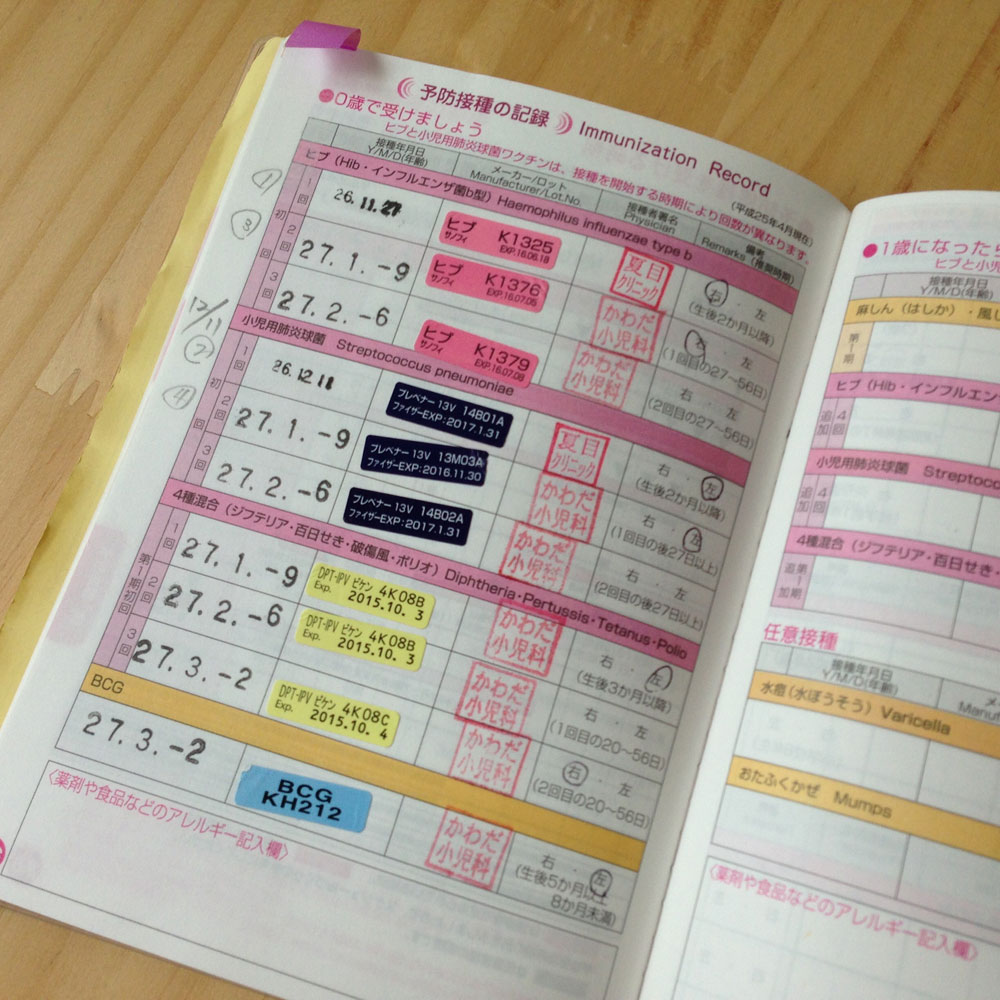 予防接種の記録 Immunization Record
(平成25年4月現在)
●0歳で受けましょう
ヒブと小児用肺炎球菌ワクチンは、接種を開始する時期により回数が異なります。
接種年月日 Y/M/D(年齢) メーカー/ロット Manufacturer/Lot.No. 接種者署名 Physician 備考 Remarks (推奨時期)
ヒブ (Hib・インフルエンザ菌b型) Haemophilus influenzae type b
① 初 1回 26.11.27 ヒブ サノフィ K1325 EXP.16.06.18 夏目クリニック 右・左 (生後2か月以降)
③ 2回 27.1.-9 ヒブ サノフィ K1376 EXP.16.07.05 かわだ小児科 右・左 (1回目の27~56日)
3回 27.2.-6 ヒブ サノフィ K1379 EXP.16.07.08 かわだ小児科 (2回目の27~56日)
小児用肺炎球菌 Streptococcus pneumoniae
12/11 ② 初 1回 26.12.11 プレベナー13V 14B01A ファイザーEXP:2017.1.31 夏目クリニック 右・左 (生後2か月以降)
④ 2回 27.1.-9 プレベナー13V 13M03A ファイザーEXP:2016.11.30 かわだ小児科 右・左 (1回目の後27日以上)
3回 27.2.-6 プレベナー13V 14B02A ファイザーEXP:2017.1.31 かわだ小児科 右・左 (2回目の後27日以上)
4種混合 (ジフテリア・百日せき・破傷風・ポリオ) Diphtheria・Pertussis・Tetanus・Polio
第1期初回 1回 27.1.-9 DPT-IPV ビケン 4K08B Exp. 2015.10.3 かわだ小児科 右・左 (生後3か月以降)
2回 27.2.-6 DPT-IPV ビケン 4K08B Exp. 2015.10.3 かわだ小児科 右・左 (1回目の20~56日)
3回 27.3.-2 DPT-IPV ビケン 4K08C Exp. 2015.10.4 かわだ小児科 右・左 (2回目の20~56日)
BCG
27.3.-2 BCG KH212 かわだ小児科 右・左 (生後5か月以上8か月未満)
〈薬剤や食品などのアレルギー記入欄〉
●1歳になった
ヒブと小児
接種年月日 Y/M/D(年齢)
麻しん (はしか)・風し
第1期
ヒブ (Hib・インフルエン
追加 4回
小児用肺炎球菌 Streptoco
追加 4回
4種混合 (ジフテリア・百日せき・
第1期 追加
任意接種
接種年月日 Y/M/D(年齢) Manu
水痘 (水ぼうそう) Varicella
おたふくかぜ Mumps
〈薬剤や食品などのアレルギー記入欄〉